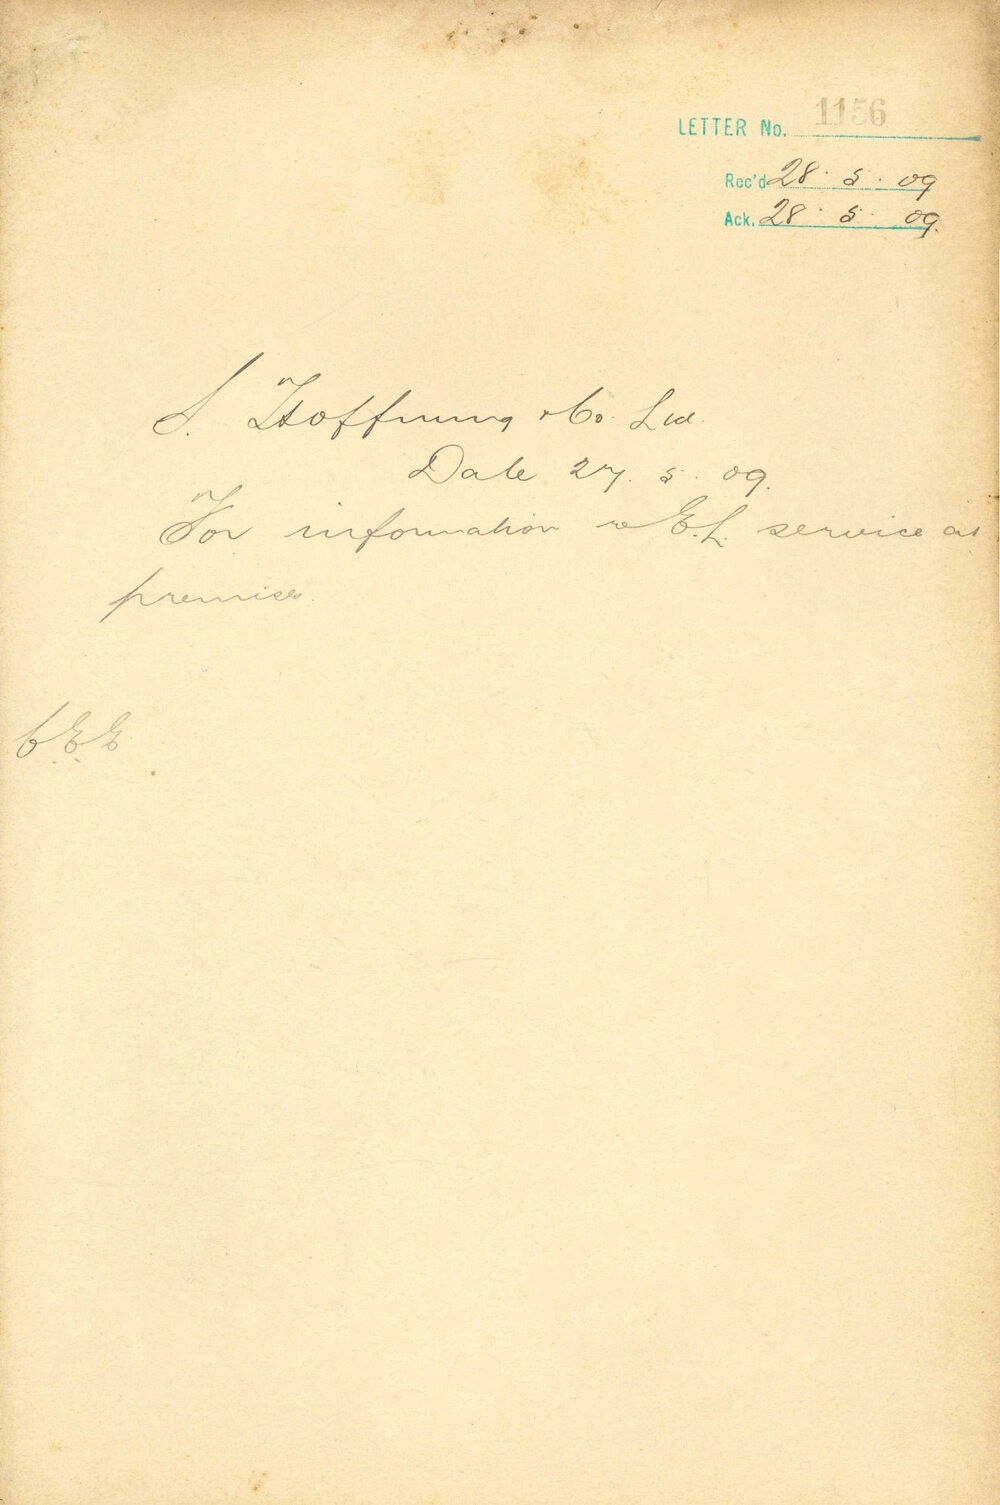 LETTER No. 1156
Rec'd 28. 5. 09
Ack. 28. 5. 09.
S. Hoffnung & Co. Ltd.
Date 27. 5. 09.
For information re E.L. service at
premises.
C.E.E